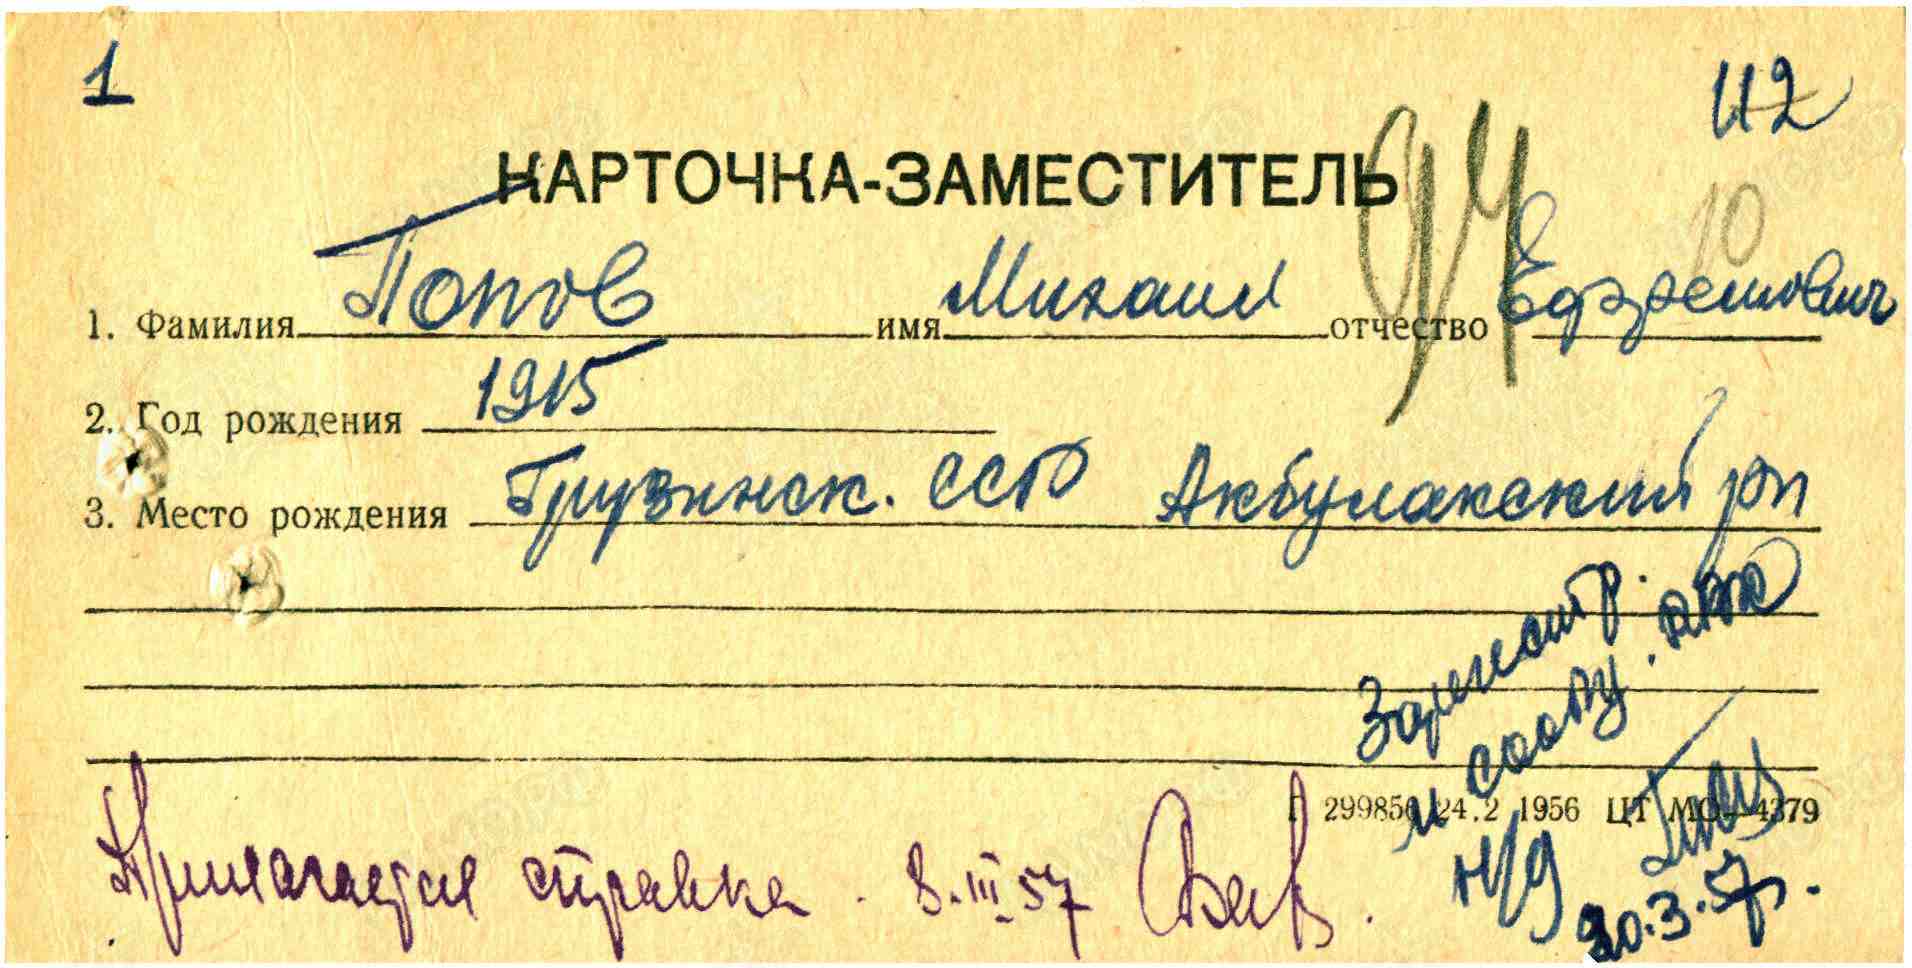 1
112
КАРТОЧКА-ЗАМЕСТИТЕЛЬ
10
1. Фамилия Попов имя Михаил отчество Ефремович
2. Год рождения 1915
3. Место рождения Грузинск. ССР Акбулакский рн
Зарегистр.
и
н/д
Г 299856 24.2 1956 ЦТ МО—4379
Прилагается справка. 8.III.57
20.3.57г.